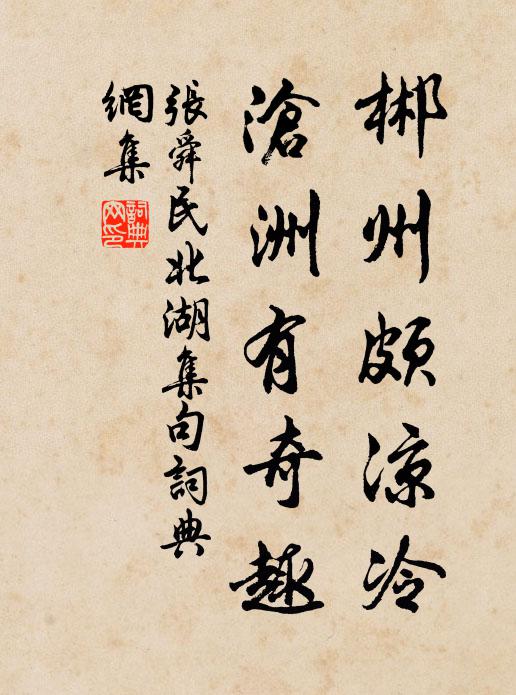 郴州頗涼冷
滄洲有奇趣
張舜民北湖集句詞典
網集
詞典
网印